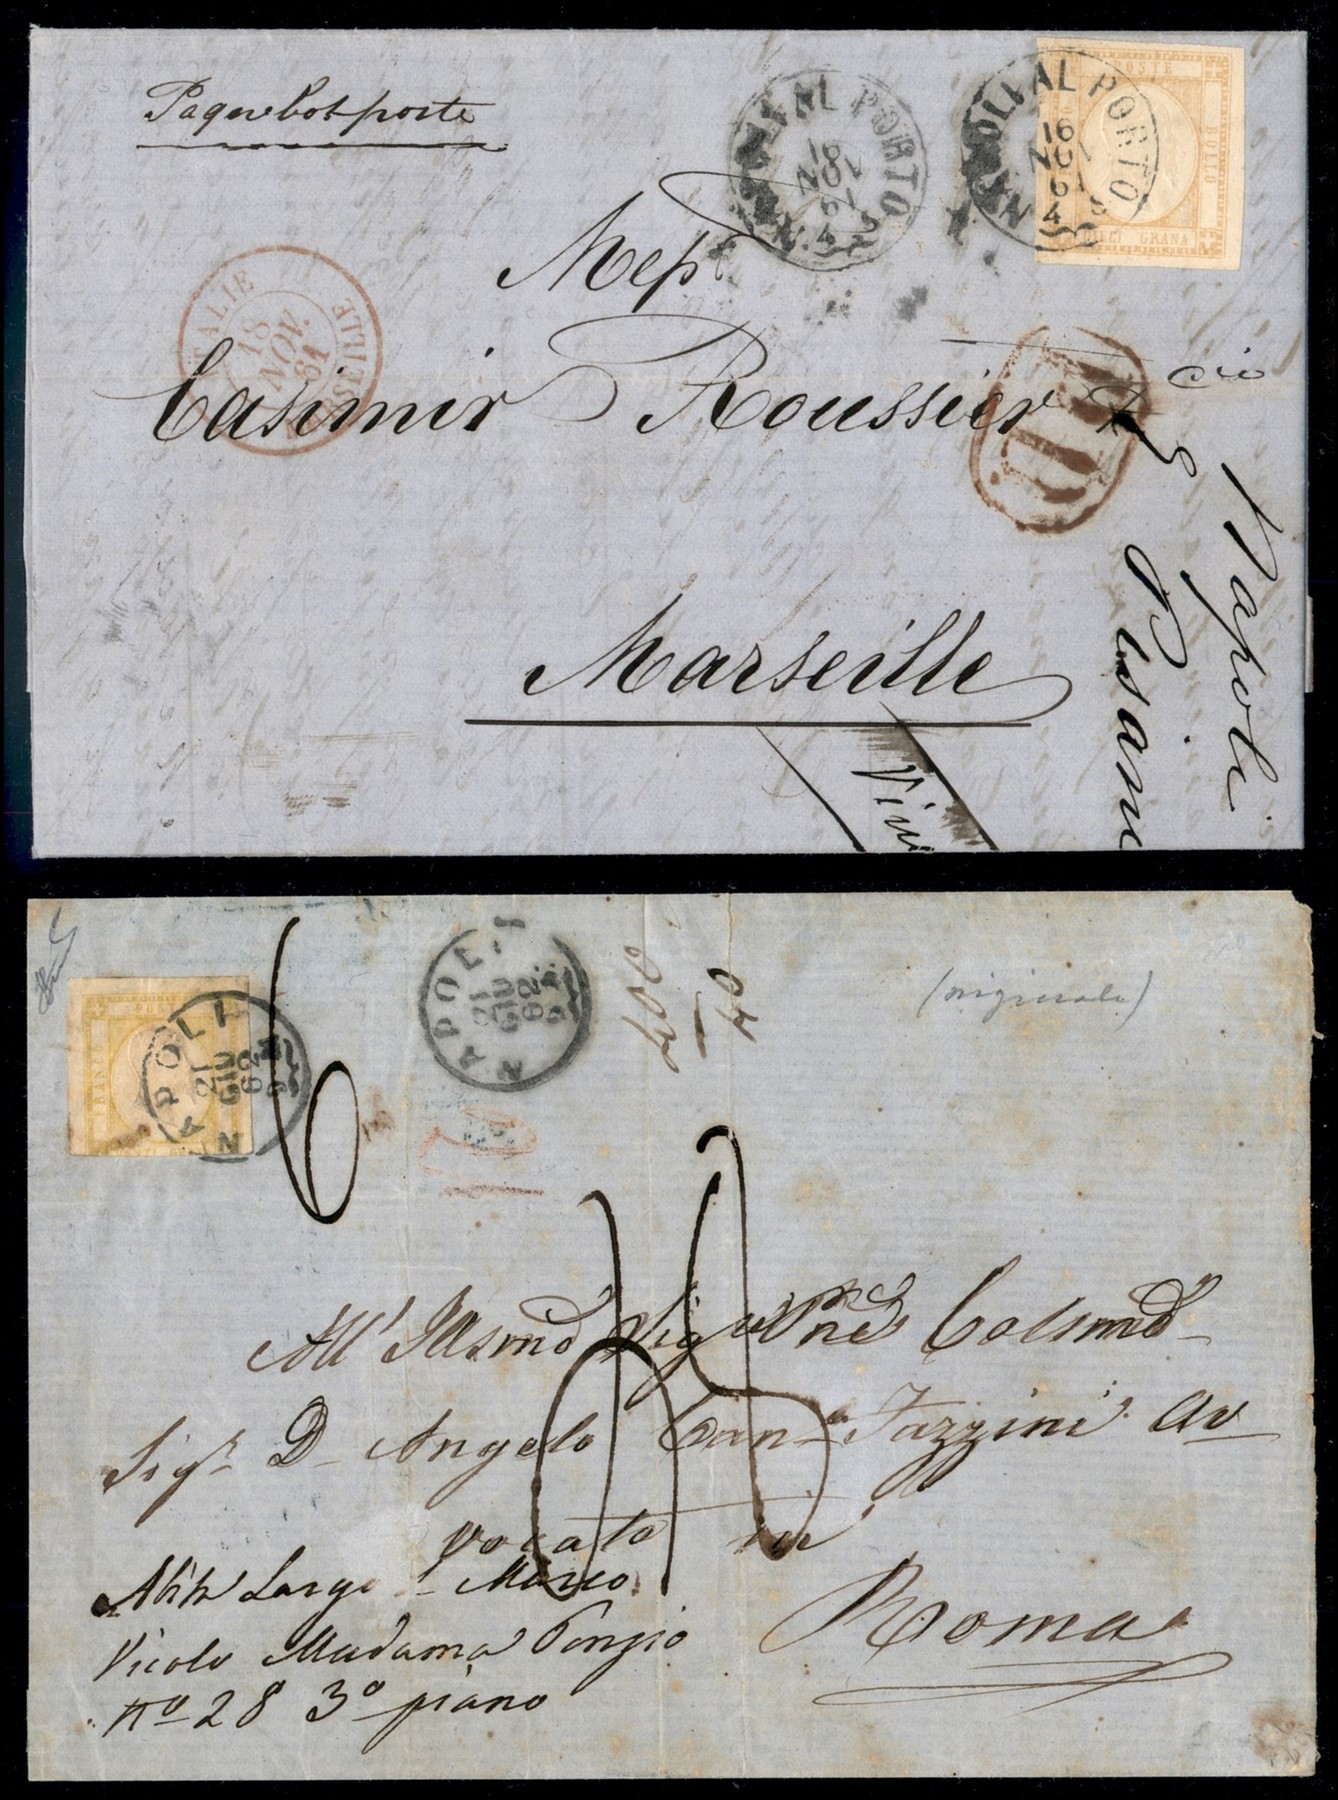 Paquebot poste
NAPOLI AL PORTO
16
NOV
61
4 S
NAPOLI AL PORTO
16
NOV
61
4 S
POSTE
BOLLO
DIECI GRANA
ITALIE
18
NOV.
61
MARSEILLE
Casimir Roussier & Cie
Marseille
Vapore
NAPOLI
21
GIU
62
GRANO
NAPOLI
21
GIU
62
6
40
(originale)
All' Illsmo Sigre
Sigr D Angelo Tazzini Av
vocato in
Roma
Largo S Marco
Vicolo Madama
no 28 3o piano